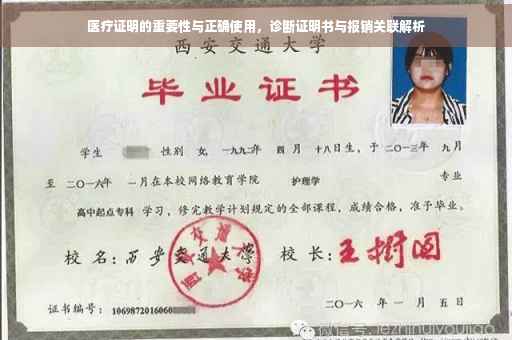 医疗证明的重要性与正确使用，诊断证明书与报销关联解析
西安交通大学
毕业证书
学生 性别 女，一九九二年 四月 十八日生，于二〇一三年 九月
至 二〇一六年 一月在本校网络教育学院 护理学 专业
高中起点专科 学习，修完教学计划规定的全部课程，成绩合格，准予毕业。
校 名：西安交通大学 校 长：王树国
西安交通大学
证书编号：1069872016060
二〇一六 年 一 月 五 日
微信号: jezhinuiyoujiao